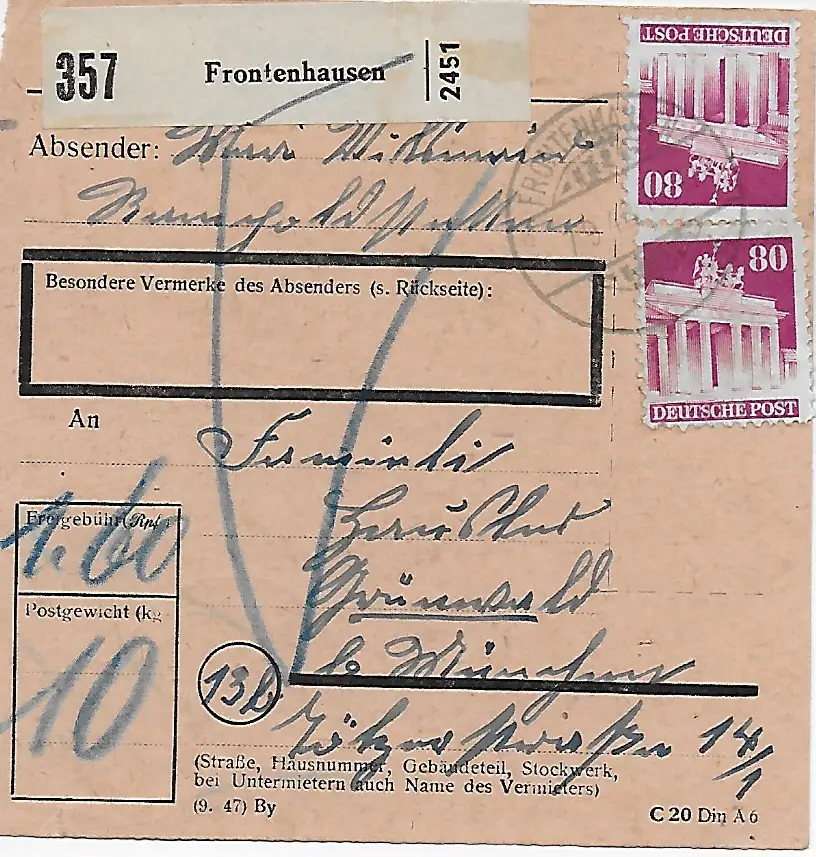 357 Frontenhausen 2451
DEUTSCHE POST
80
FRONTENHAUSEN
Absender:
Besondere Vermerke des Absenders (s. Rückseite):
80
DEUTSCHE POST
An
Familie
Freigebühr (Rpf.)
1.60
Grünwald
Postgewicht (kg
10
b. München
13b
14/1
(Straße, Hausnummer, Gebäudeteil, Stockwerk,
bei Untermietern auch Name des Vermieters)
(9. 47) By
C 20 Din A 6